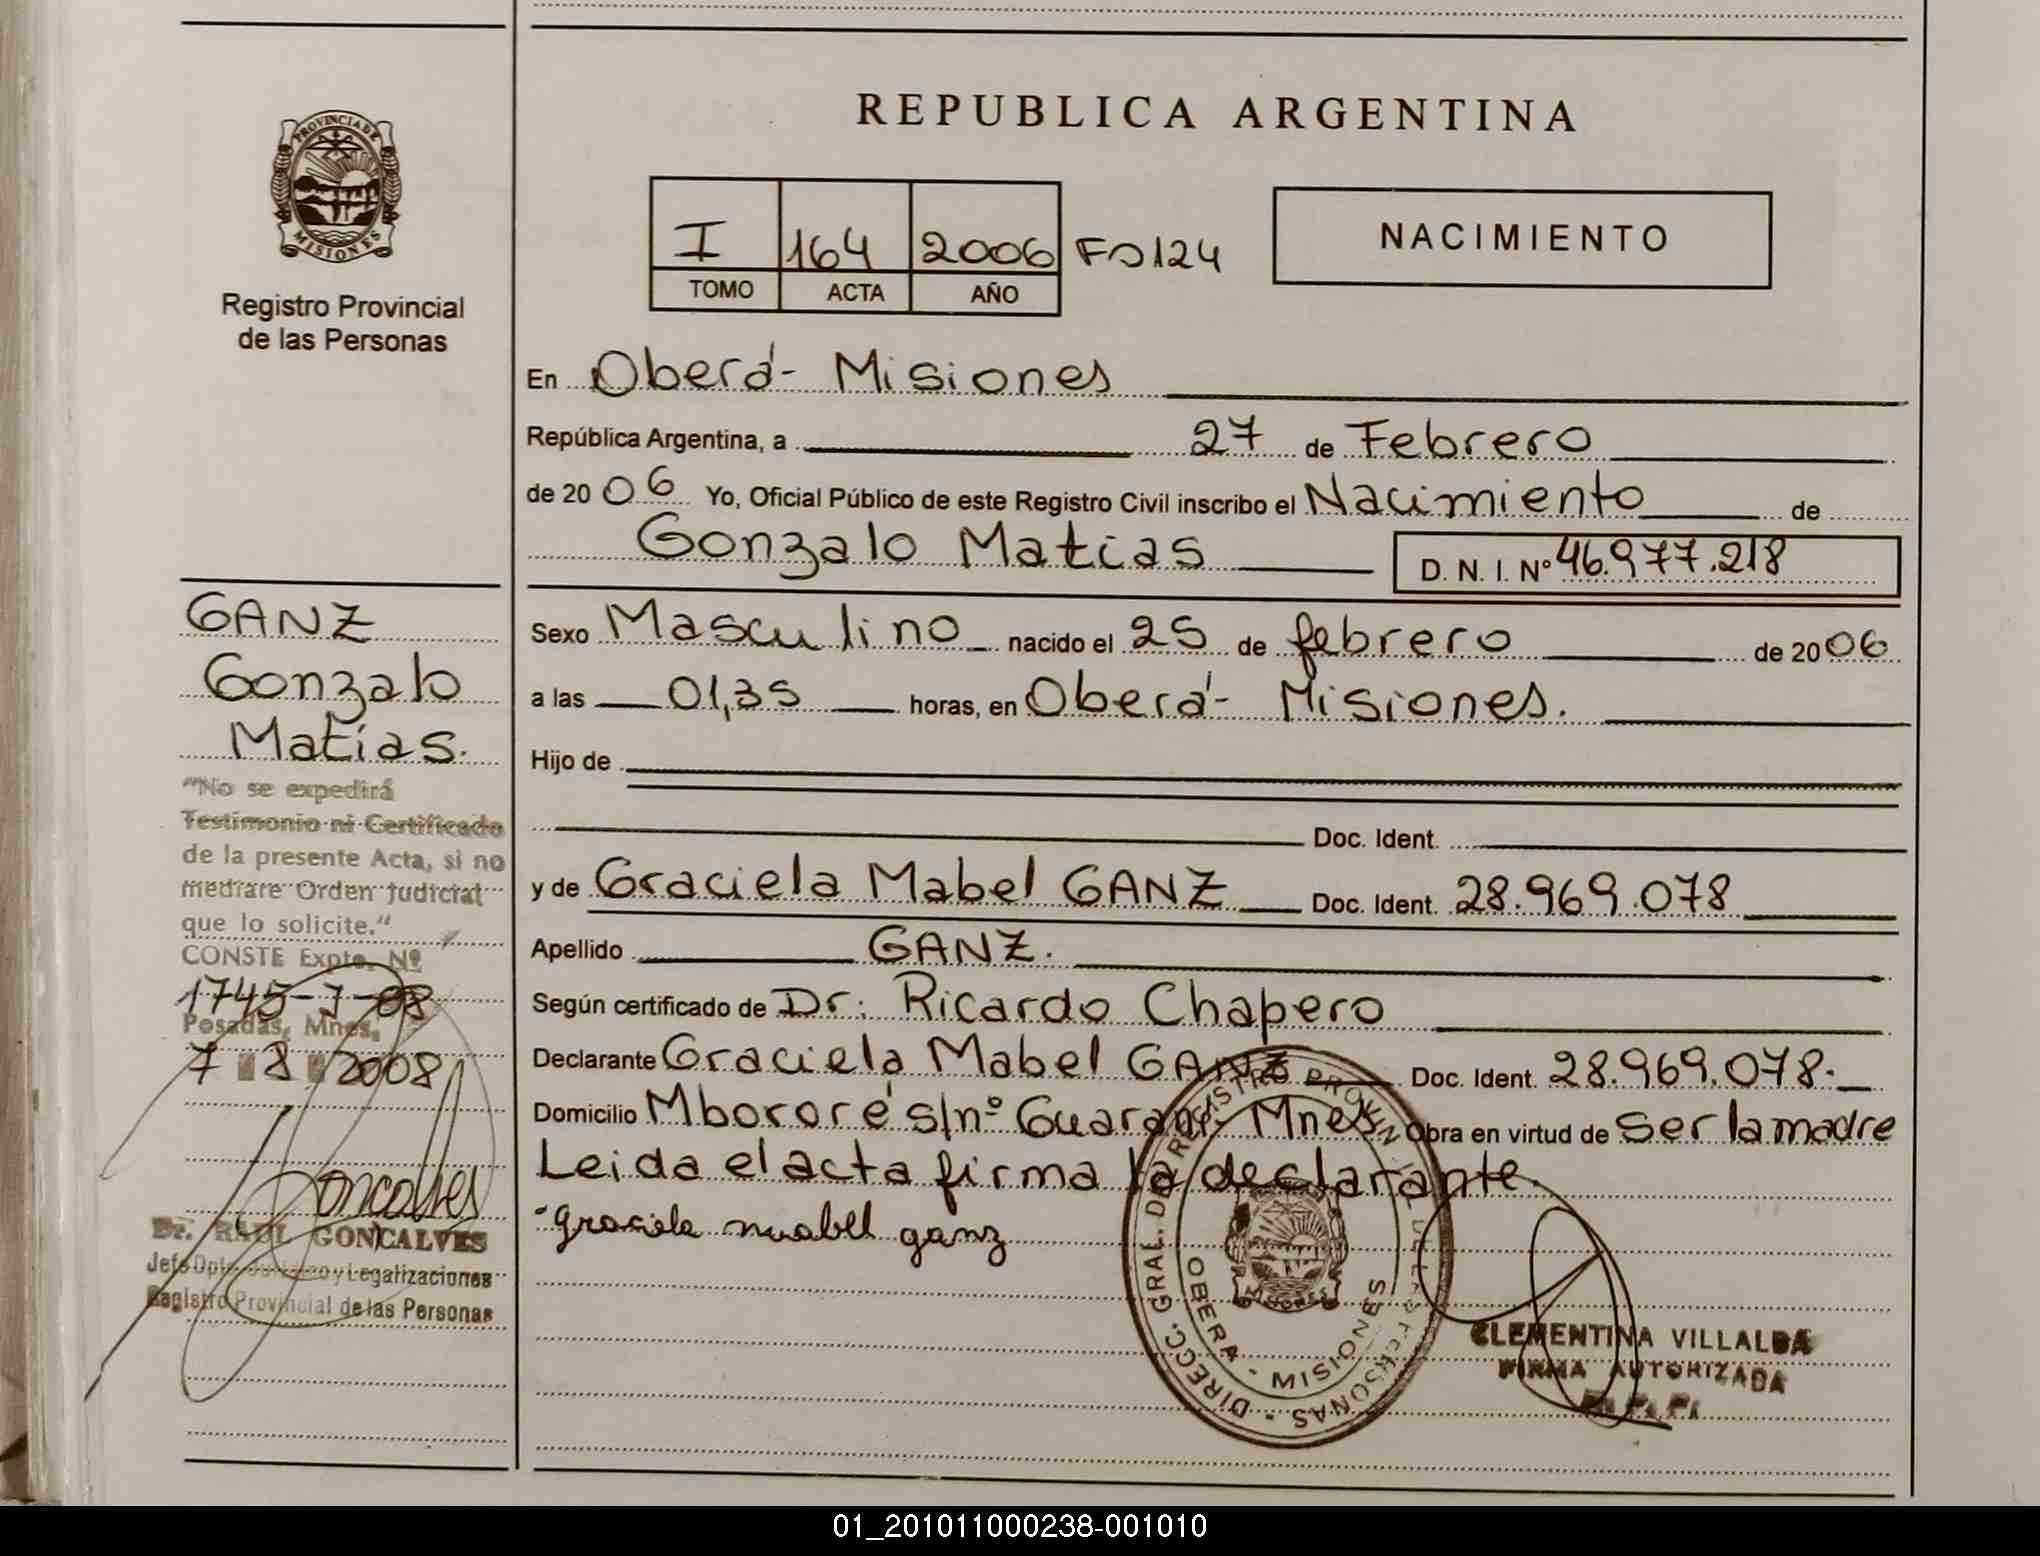 REPUBLICA ARGENTINA
PROVINCIA DE MISIONES
Registro Provincial
de las Personas
I 164 2006 Fº 124
TOMO ACTA AÑO
NACIMIENTO
En Oberá - Misiones
República Argentina, a 27 de Febrero
de 20 06 Yo, Oficial Público de este Registro Civil inscribo el Nacimiento de
Gonzalo Matías D. N. I. Nº 46.977.218
Sexo Masculino nacido el 25 de febrero de 20 06
a las 01,35 horas, en Oberá - Misiones.
Hijo de
Doc. Ident.
y de Graciela Mabel GANZ Doc. Ident. 28.969.078
Apellido GANZ.
Según certificado de Dr: Ricardo Chapero
Declarante Graciela Mabel GANZ Doc. Ident. 28.969.078.
Domicilio Mbororé s/nº Guaraní - Mnes Obra en virtud de Ser la madre
Leida el acta firma la declarante.
graciela mabel ganz
GANZ
Gonzalo
Matías.
"No se expedirá
Testimonio ni Certificado
de la presente Acta, si no
mediare Orden Judicial
que lo solicite."
CONSTE Expte. Nº
1745-J-08
Posadas, Mnes,
7 8 2008
Goncalves
Dr. RAUL GONCALVES
Jefe Dpto. y Legalizaciones
Registro Provincial de las Personas
DIRECC. GRAL. DE REGISTRO PROVINCIAL DE LAS PERSONAS
OBERA - MISIONES
MISIONES
CLEMENTINA VILLALBA
FIRMA AUTORIZADA
01_201011000238-001010